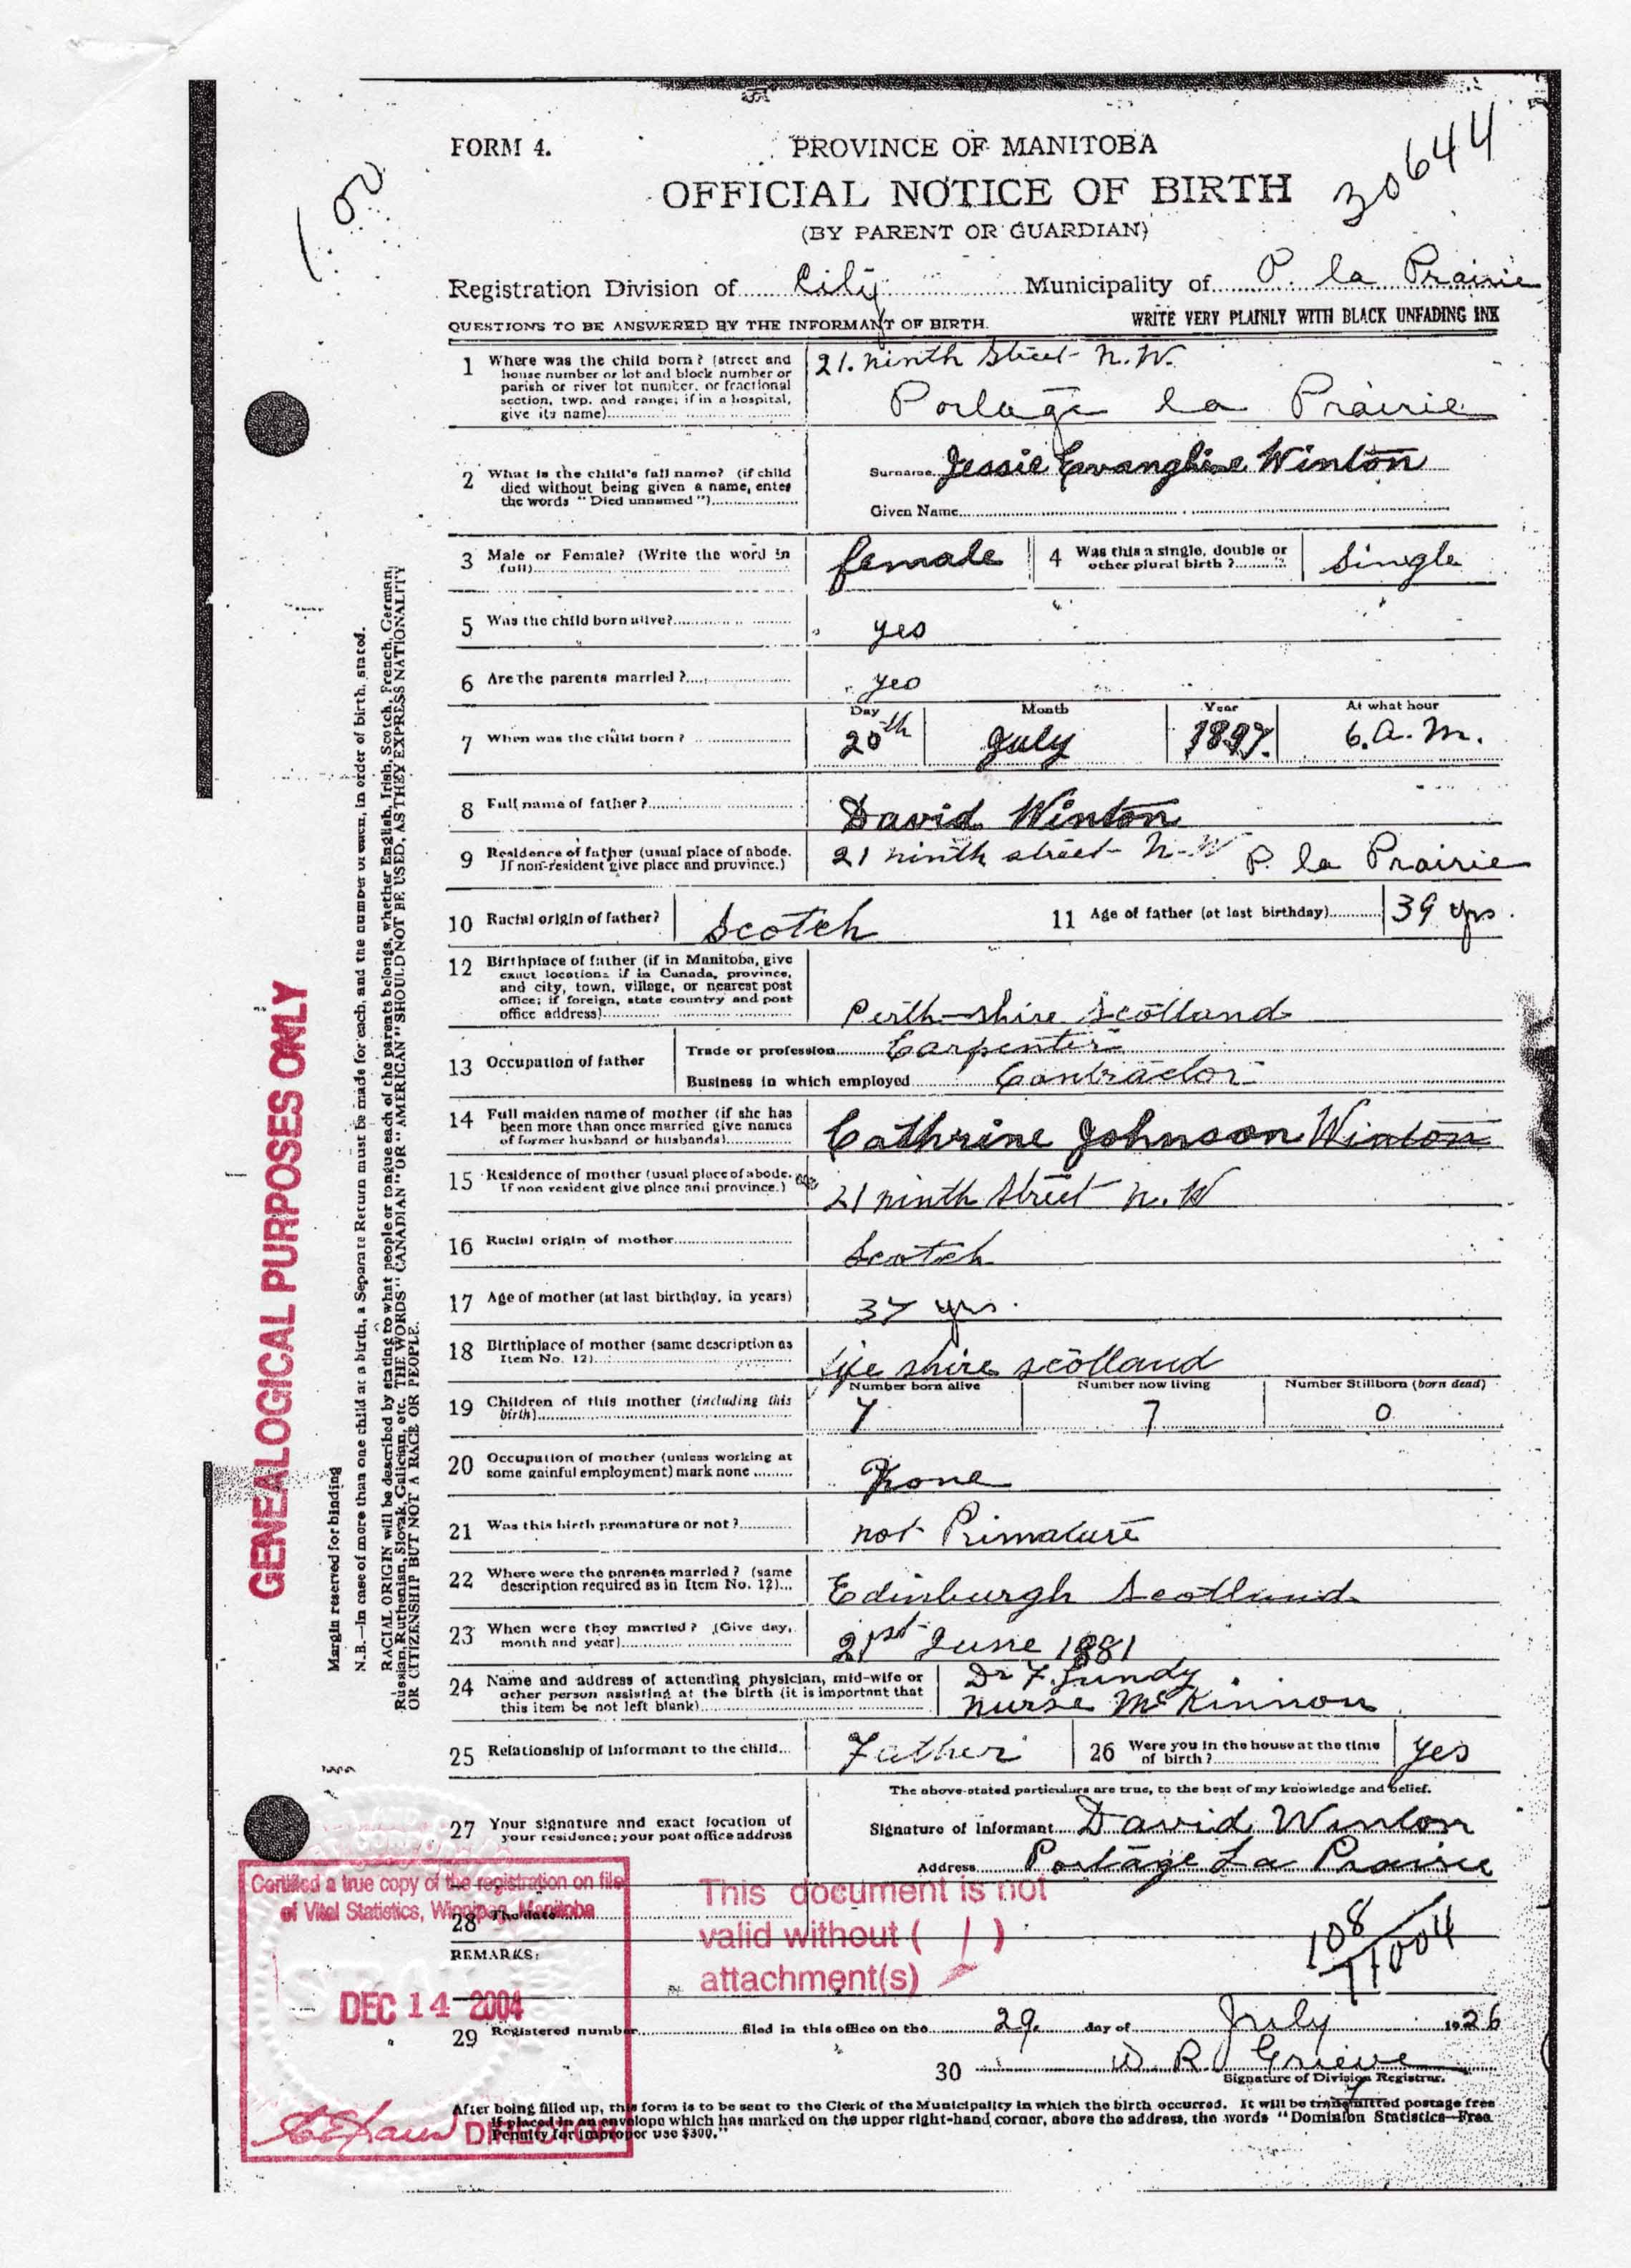 FORM 4.
PROVINCE OF MANITOBA
30644
1.00
OFFICIAL NOTICE OF BIRTH
(BY PARENT OR GUARDIAN)
Registration Division of City Municipality of P. la Prairie
QUESTIONS TO BE ANSWERED BY THE INFORMANT OF BIRTH. WRITE VERY PLAINLY WITH BLACK UNFADING INK
1 Where was the child born? (street and
house number or lot and block number or
parish or river lot number, or fractional
section, twp. and range; if in a hospital,
give its name)
21. ninth Street N.W.
Portage la Prairie
2 What is the child's full name? (if child
died without being given a name, enter
the words "Died unnamed")
Surname Jessie Evangline Winton
Given Name
3 Male or Female? (Write the word in
full)
female
4 Was this a single, double or
other plural birth?
Single
5 Was the child born alive?
yes
6 Are the parents married?
yes
7 When was the child born?
Day Month Year At what hour
20th July 1897. 6. a. m.
8 Full name of father?
David Winton
9 Residence of father (usual place of abode.
If non-resident give place and province.)
21 ninth street N-W P. la Prairie
10 Racial origin of father?
Scotch
11 Age of father (at last birthday)
39 yrs.
12 Birthplace of father (if in Manitoba, give
exact location; if in Canada, province,
and city, town, village, or nearest post
office; if foreign, state country and post
office address)
Perth-shire Scotland
13 Occupation of father
Trade or profession Carpenter
Business in which employed Contractor
14 Full maiden name of mother (if she has
been more than once married give names
of former husband or husbands)
Cathrine Johnson Winton
15 Residence of mother (usual place of abode.
If non resident give place and province.)
21 ninth Street N. W
16 Racial origin of mother
Scotch
17 Age of mother (at last birthday, in years)
37 yrs.
18 Birthplace of mother (same description as
Item No. 12)
shire scotland
19 Children of this mother (including this
birth)
Number born alive Number now living Number Stillborn (born dead)
7 7 0
20 Occupation of mother (unless working at
some gainful employment) mark none
None
21 Was this birth premature or not?
not Primature
22 Where were the parents married? (same
description required as in Item No. 12)
Edinburgh Scotland
23 When were they married? (Give day,
month and year)
21st June 1881
24 Name and address of attending physician, mid-wife or
other person assisting at the birth (it is important that
this item be not left blank)
Dr F. Lundy
nurse McKinnon
25 Relationship of Informant to the child
Father
26 Were you in the house at the time
of birth?
Yes
The above-stated particulars are true, to the best of my knowledge and belief.
27 Your signature and exact location of
your residence; your post office address
Signature of Informant David Winton
Address Portage La Prairie
28 The date
REMARKS:
108
11004
29 Registered number filed in this office on the 29. day of July 1926
30 W R Grieve
Signature of Division Registrar.
After being filled up, this form is to be sent to the Clerk of the Municipality in which the birth occurred. It will be transmitted postage free
if placed in an envelope which has marked on the upper right-hand corner, above the address, the words "Dominion Statistics—Free.
Penalty for improper use $300."
Margin reserved for binding
N.B.—In case of more than one child at a birth, a Separate Return must be made for each, and the number of each, in order of birth, stated.
RACIAL ORIGIN will be described by stating to what people or tongue each of the parents belongs, whether English, Irish, Scotch, French, German,
Russian, Ruthenian, Slovak, Galician, etc. THE WORDS "CANADIAN" OR "AMERICAN" SHOULD NOT BE USED, AS THEY EXPRESS NATIONALITY
OR CITIZENSHIP BUT NOT A RACE OR PEOPLE.
GENEALOGICAL PURPOSES ONLY
Certified a true copy of the registration on file
of Vital Statistics, Winnipeg, Manitoba
DEC 14 2004
DIRECTOR
This document is not
valid without ( 1 )
attachment(s)